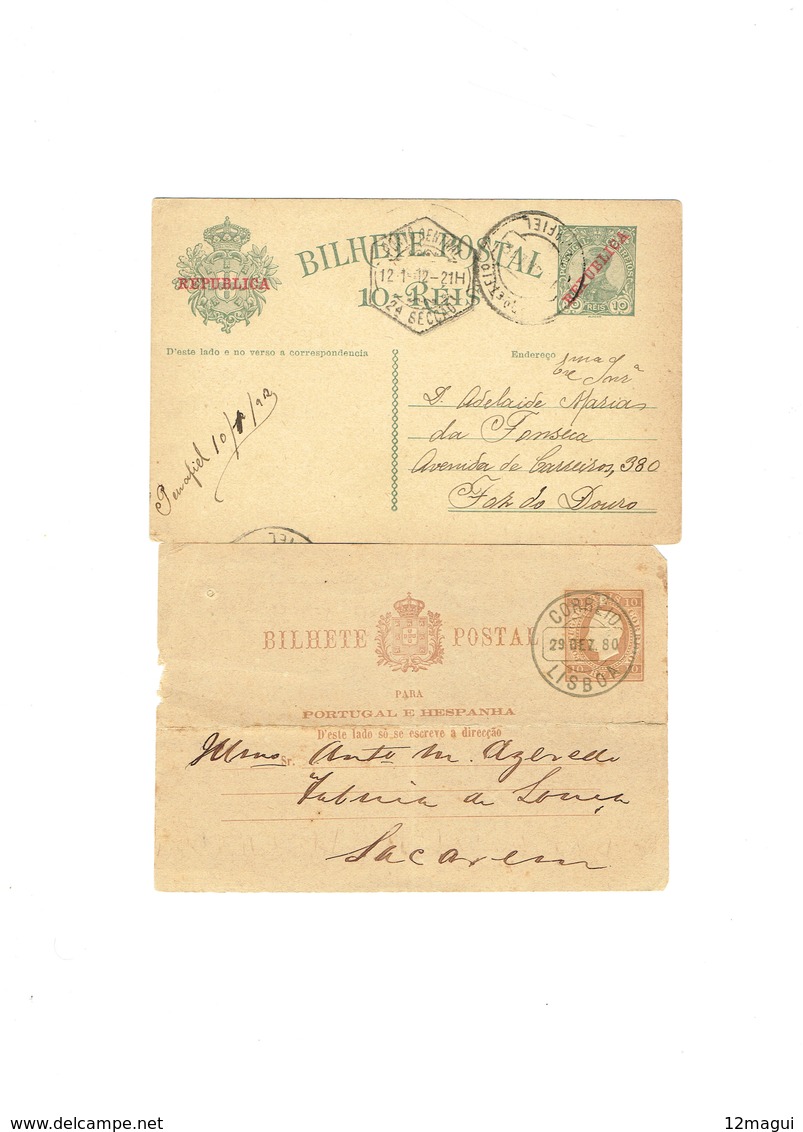 BILHETE POSTAL
REPUBLICA
10-REIS
12-1-12-21H
2A SECCÃO
PENAFIEL
REPUBLICA
10 REIS 10
D'este lado e no verso a correspondencia
Endereço
Penafiel 10/1/912
D. Adelaide Marias
da Fonseca
Avenida de Carreiros, 380
Foz do Douro
BILHETE POSTAL
CORREIO
29 DEZ. 80
LISBOA
10
10
PARA
PORTUGAL E HESPANHA
D'este lado só se escreve a direcção
Illmo Sr. Anto M. Azevedo
Fabrica de Louça
Sacavem
delcampe.net
12magui